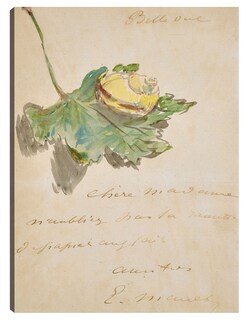 Bellevue
chère madame
n'oubliez pas la
papier anglais
amitiés
E. Manet